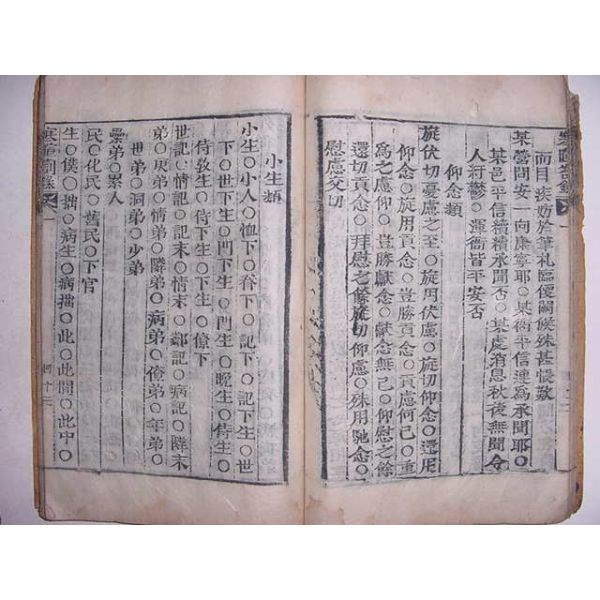 而目疾妨於筆札臨便闕候殊甚悵歎
某營問安○向廉寧耶○某衙平信連爲承聞耶○
某邑平信續續承聞否○某處消息秋後無聞令
人紆鬱○渾衙皆平安否
仰念類
旋伏切憂慮之至○旋用伏慮○旋切仰念○還用
仰念○旋用貢念○豈勝貢念○貢慮何已○重
爲之慮仰○豈勝獻念○獻念無已○仰慰之餘
還切貢念○拜慰之餘旋切仰慮○殊用馳念○
慰慮交切
小生類
小生○小人○恤下○眷下○記下○記下生○世
下○世下生○門下生○門生○晩生○侍生○
侍敎生○侍下生○下生○僚下
世記○情記○記末○情末○鄰記○病記○隣末
弟○戾弟○情弟○隣弟○病弟○僚弟○年弟○
世弟○洞弟○少弟
纍弟○纍人
民○化民○舊民○下官
生○僕○拙○病生○病拙○此○此間○此中○
四十三